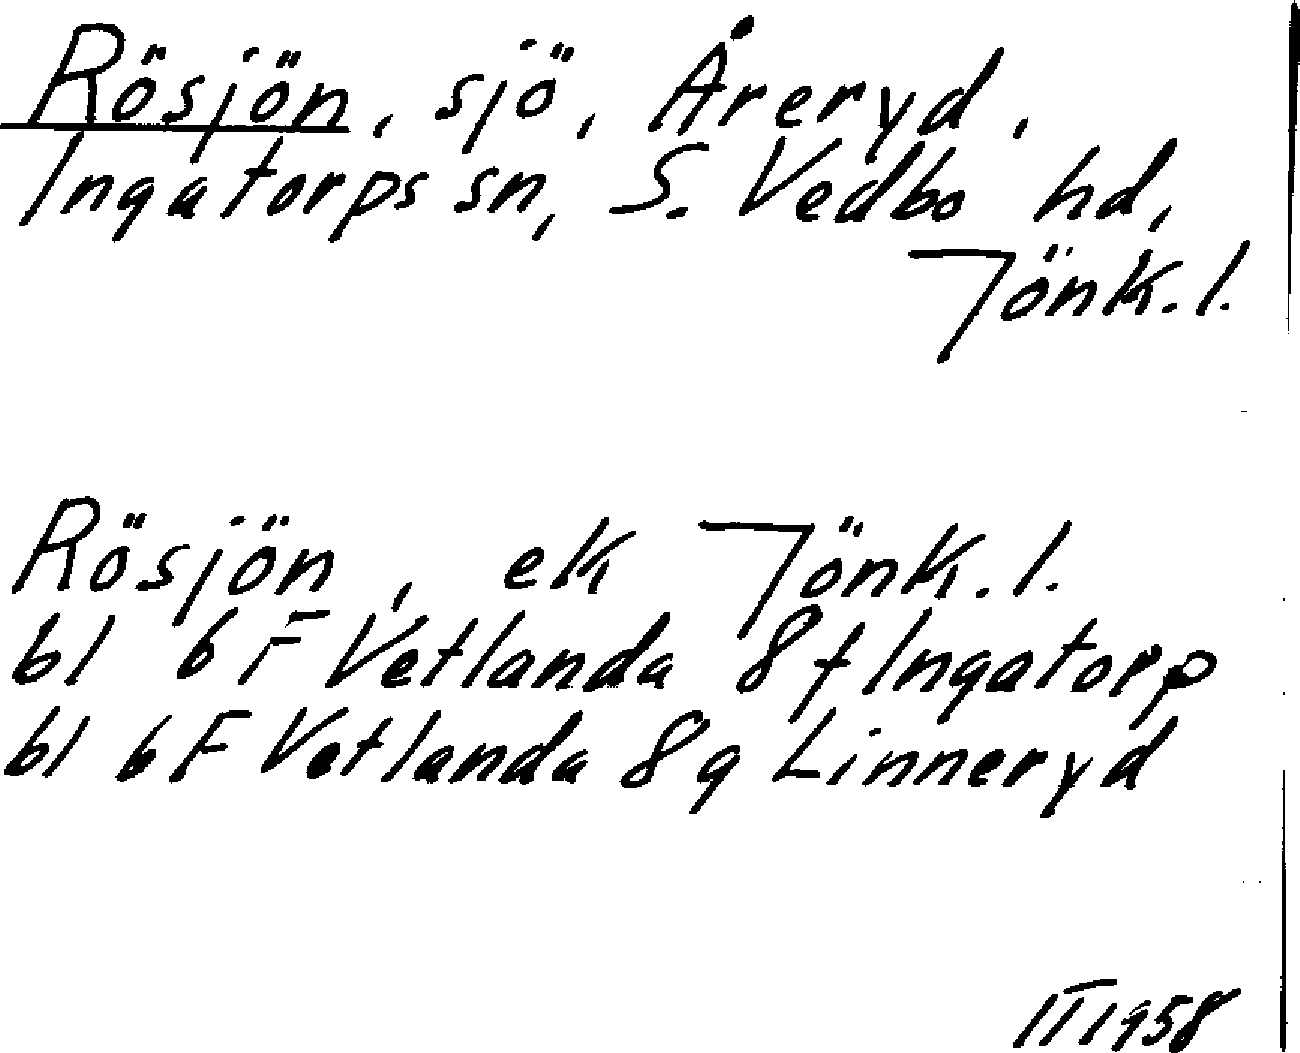 Rösjön, sjö, Åreryd,
Ingatorps sn, S. Vedbo hd,
Jönk. l.
Rösjön, ek Jönk. l.
bl 6F Vetlanda 8f Ingatorp
bl 6F Vetlanda 8g Linneryd
IT 1958